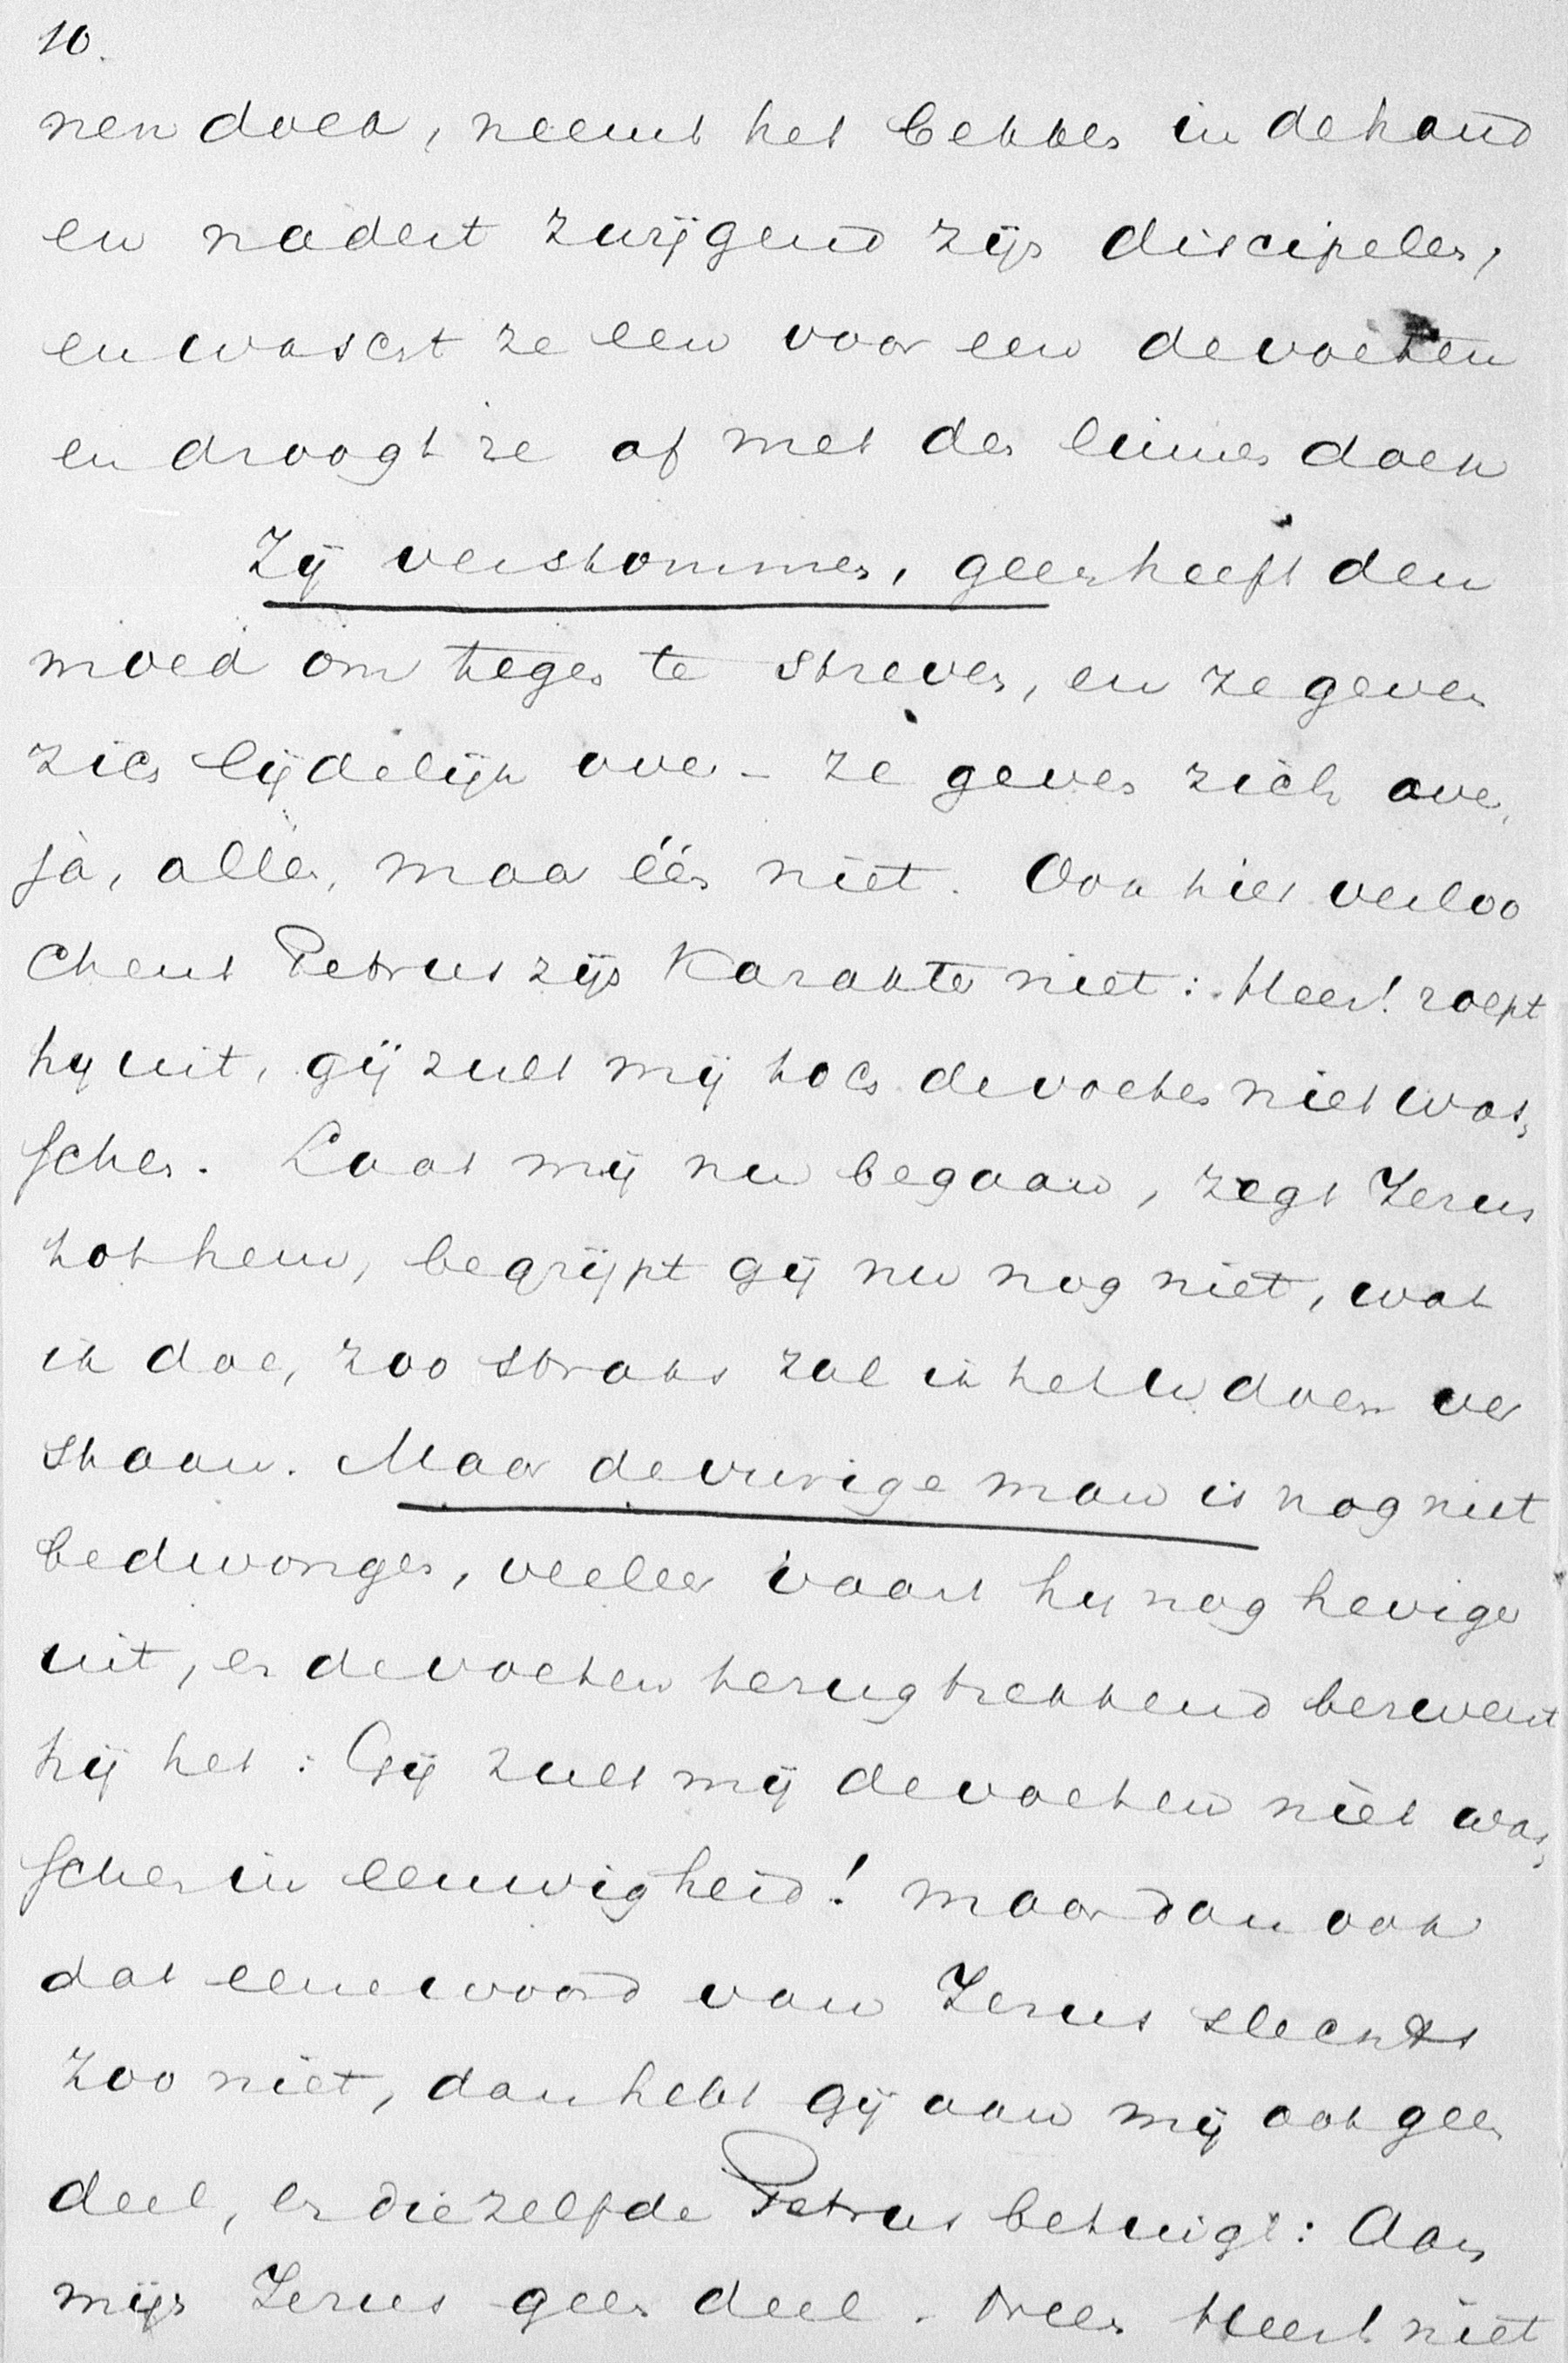 10.
nen doek, neemt het bekken in de hand
en nadert zwijgend zijn discipelen,
en wascht ze een voor een de voeten
en droogt ze af met den linnen doek
Zij verstommen, geen heeft den
moed om tegen te streven, en ze geven
zich lijdelijk over - ze geven zich over,
ja, allen, maar één niet. Ook hier verloo
chent Petrus zijn karakter niet: Heer! roept
hij uit, gij zult mij toch de voeten niet was,
schen. Laat mij nu begaan, zegt Jezus
tot hem, begrijpt gij nu nog niet, wat
ik doe, zoo straks zal ik het u doen ver
staan. Maar de vurige man is nog niet
bedwongen, veeleer vaart hij nog heviger
uit, en de voeten terugtrekkend bezweert
hij het: Gij zult mij de voeten niet was,
schen in eeuwigheid! maar dan ook
dat eene woord van Jezus slechts
zoo niet, dan hebt gij aan mij ook geen
deel, en diezelfde Petrus betuigt: Aan
mijn Jezus geen deel. Neen Heer! niet